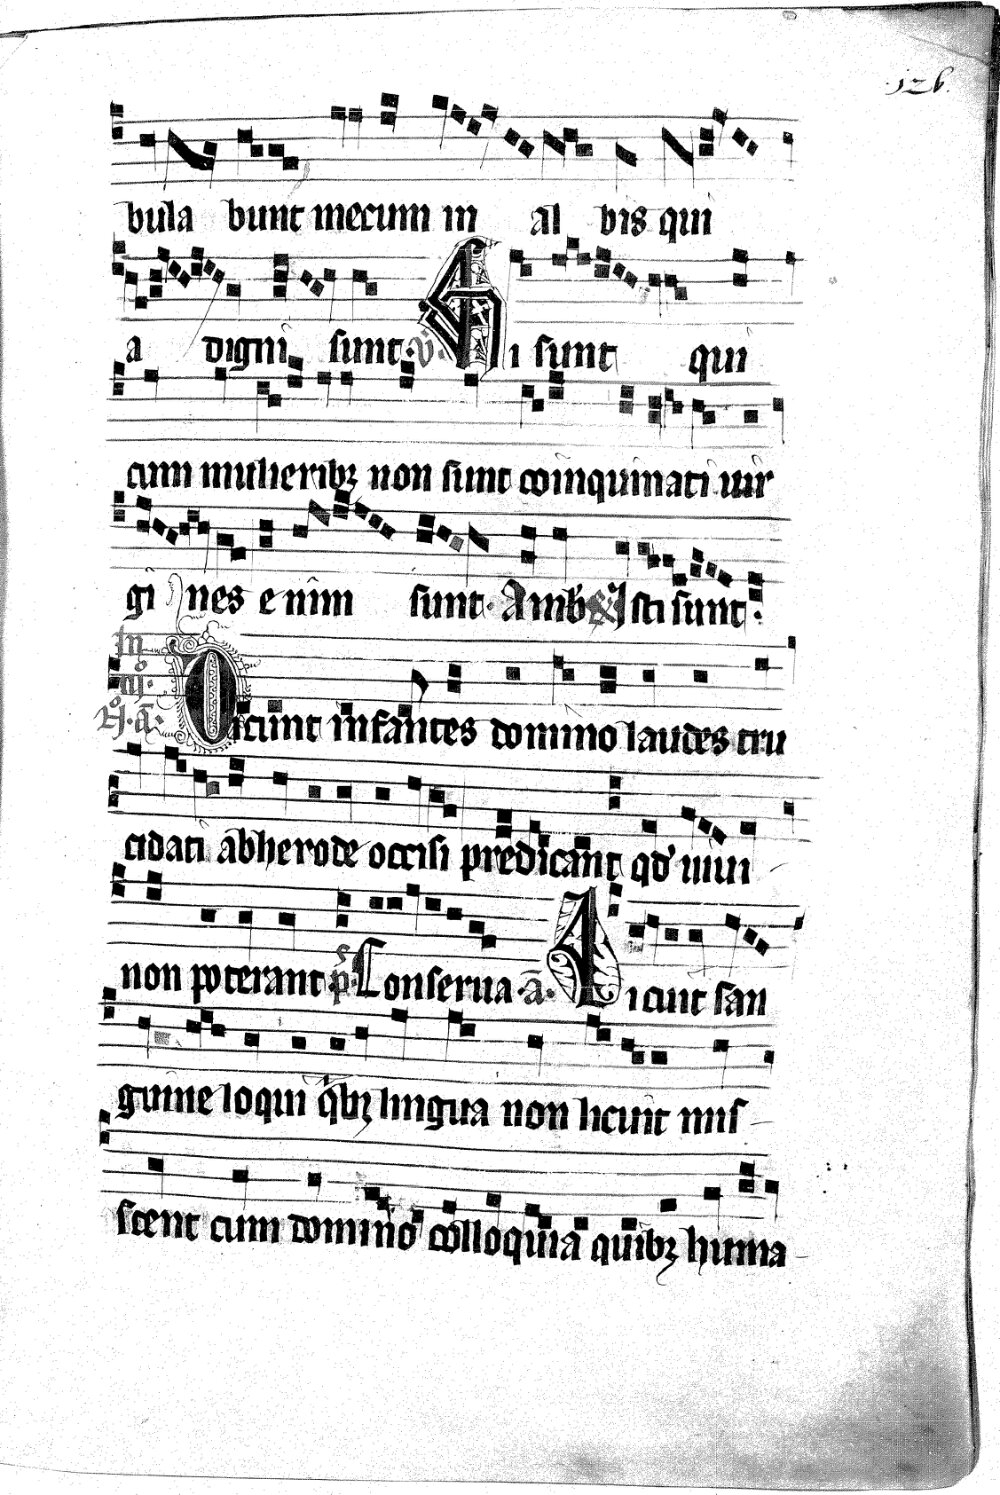 126.
bula bunt mecum in al bis qui
a digni sunt. V. Hi sunt qui
cum mulieribꝫ non sunt coinquinati uir
gi nes enim sunt. Amb&. Isti sunt.
In
iii.
N. a. Dicunt infantes domino laudes tru
cidati ab herode occisi predicant qd' uiui
non poterant. ps. Conserua. a. Licuit san
guine loqui qbꝫ lingua non licuit mis
scent cum domino colloquia quibꝫ huma